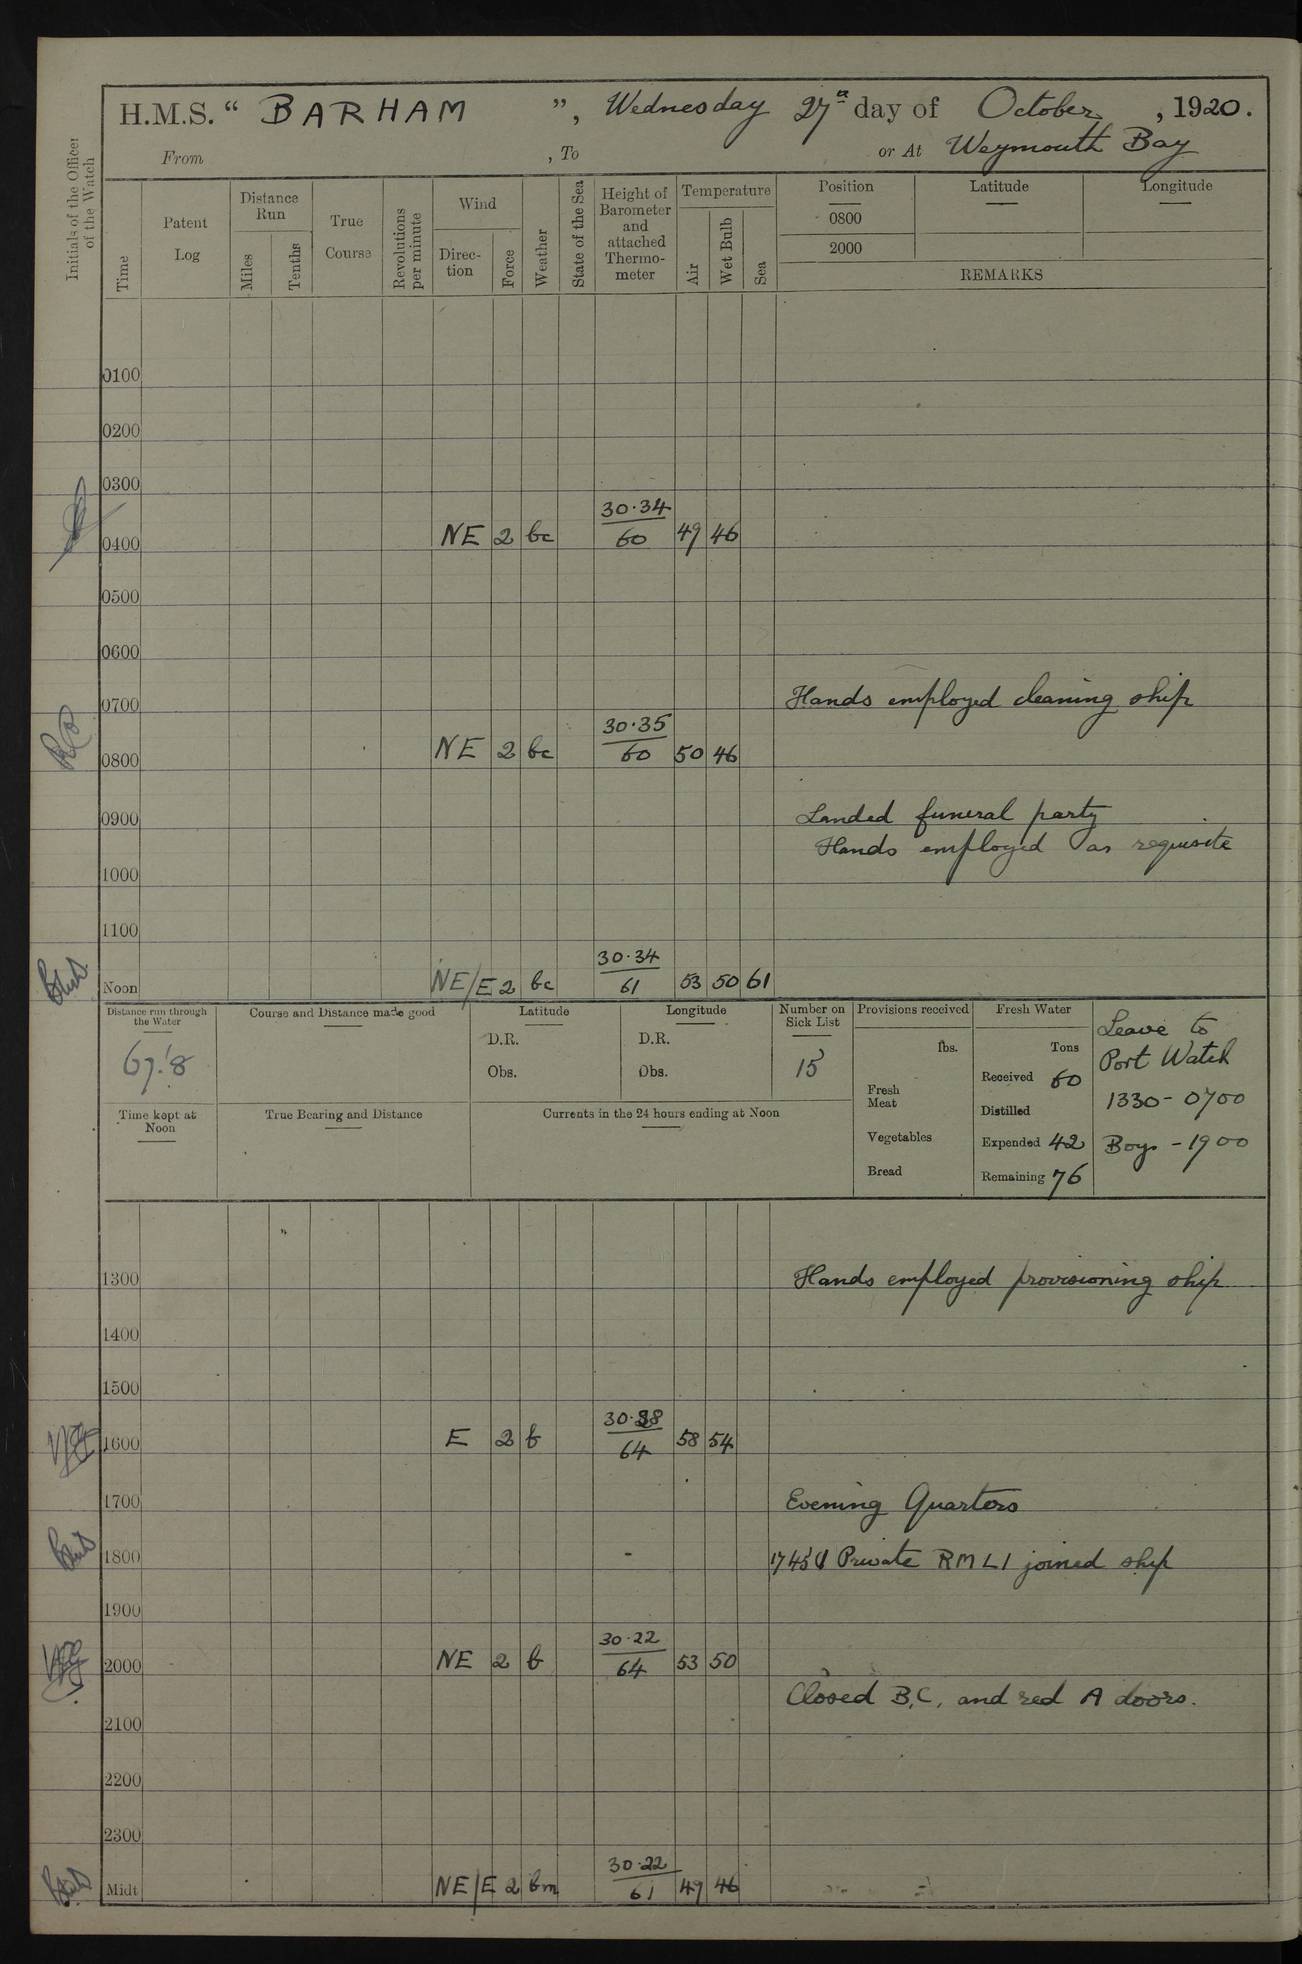 H.M.S. “ BARHAM ”, Wednesday 27th day of October, 1920.
From , To or At Weymouth Bay
Initials of the Officer of the Watch
Time
Patent Log
Distance Run
Miles
Tenths
True Course
Revolutions per minute
Wind
Direction
Force
Weather
State of the Sea
Height of Barometer and attached Thermometer
Temperature
Air
Wet Bulb
Sea
Position Latitude Longitude
0800
2000
REMARKS
0100
0200
0300
30·34
0400 NE 2 bc 60 49 46
0500
0600
0700 Hands employed cleaning ship
30·35
0800 NE 2 bc 60 50 46
0900 Landed funeral party
Hands employed as requisite
1000
1100
30·34
Noon NE/E 2 bc 61 53 50 61
Distance run through the Water
67.'8
Course and Distance made good
Latitude
D.R.
Obs.
Longitude
D.R.
Obs.
Number on Sick List
15
Provisions received
lbs.
Fresh Meat
Vegetables
Bread
Fresh Water
Tons
Received 60
Distilled
Expended 42
Remaining 76
Leave to
Port Watch
1330 - 0700
Boys - 1900
Time kept at Noon
True Bearing and Distance
Currents in the 24 hours ending at Noon
1300 Hands employed provisioning ship
1400
1500
1600 E 2 b 64 58 54
1700 Evening Quarters
1800 1745 Private RMLI joined ship
1900
30·22
2000 NE 2 b 64 53 50
Closed B, C, and red A doors.
2100
2200
2300
30·22
Midt NE/E 2 bm 61 49 46